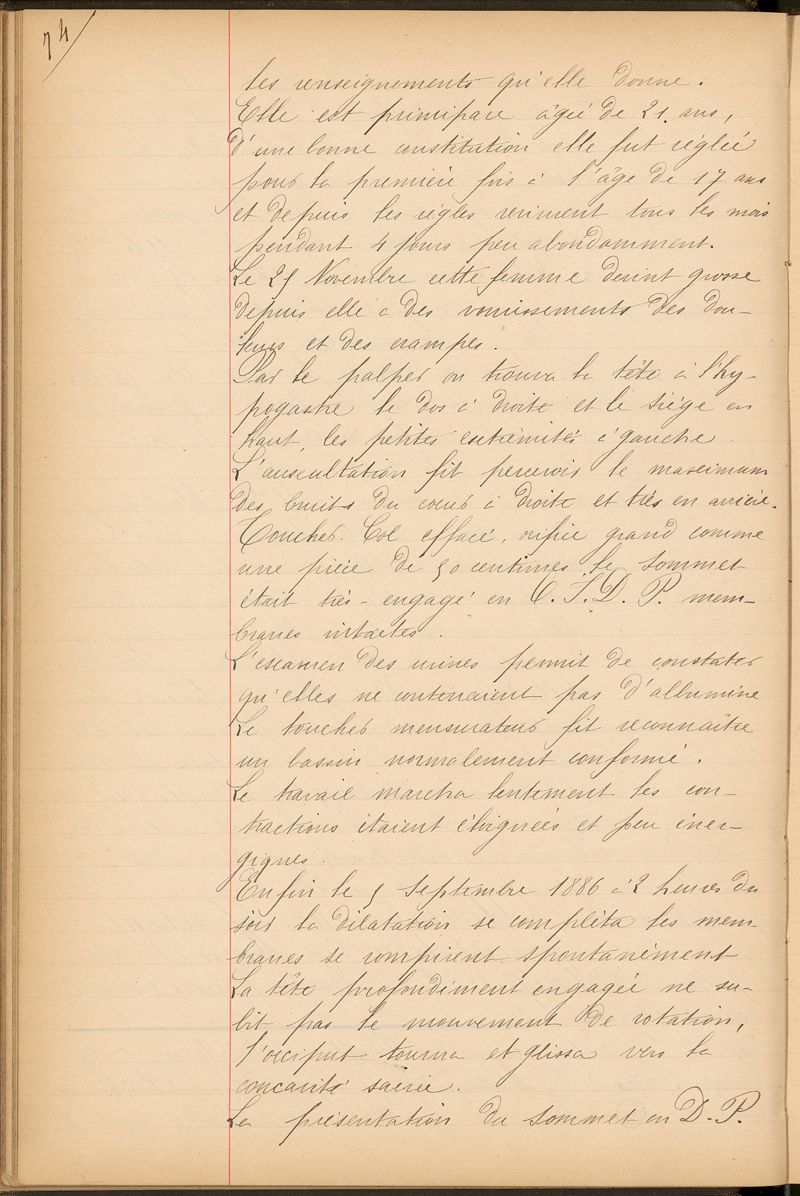 74
les renseignements qu'elle donne.
Elle est primipare âgée de 21 ans,
d'une bonne constitution elle fut réglée
pour la première fois à l'âge de 17 ans
et depuis les règles vinrent tous les mois
pendant 4 jours peu abondamment.
Le 25 Novembre cette femme devint grosse
depuis elle a des vomissements des dou-
leurs et des crampes.
Par le palper on trouva la tête à l'hy-
pogastre le dos à droite et le siège en
haut, les petites extrémités à gauche
L'auscultation fit percevoir le maximum
des bruits du cœur à droite et très en arrière.
Toucher. Col effacé, orifice grand comme
une pièce de 50 centimes le sommet
était très-engagé en O.I.D.P. mem-
branes intactes.
L'examen des urines permit de constater
qu'elles ne contenaient pas d'albumine
Le toucher mensurateur fit reconnaître
un bassin normalement conformé.
Le travail marcha lentement les con-
tractions étaient éloignées et peu éner-
giques.
Enfin le 5 Septembre 1886 à 2 heures du
soir la dilatation se compléta les mem-
branes se rompirent spontanément
La tête profondément engagée ne su-
bit pas le mouvement de rotation,
l'occiput tourna et glissa vers la
concavité sacrée.
La présentation du sommet en D.P.